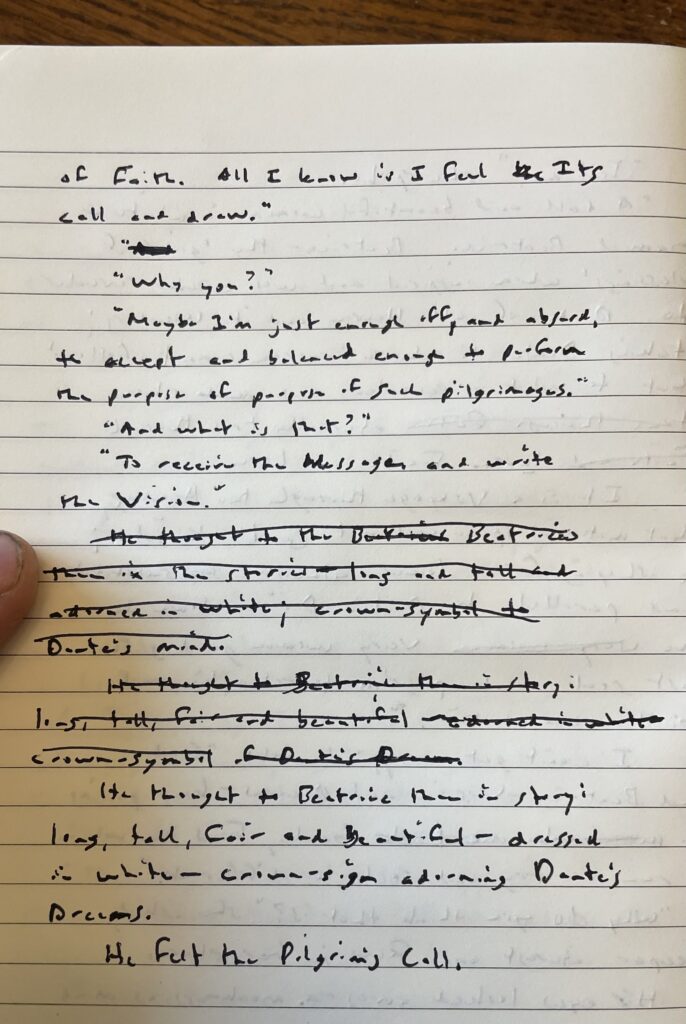 of Faith. All I know is I feel the Its
call and draw."
"And
"Why you?"
"Maybe I'm just enough off, and absurd,
to accept and balanced enough to perform
the purpose of purpose of such pilgrimages."
"And what is that?"
"To receive the Messages and write
the Vision."
He thought to the Beatrice
then in the stories long and tall and
adorned in white; crown-symbol to
Dante's mind.
He thought to Beatrice then in story:
long, tall, fair and beautiful adorned in white
crown-symbol of Dante's Dreams.
He thought to Beatrice then in story:
long, tall, fair and beautiful – dressed
in white – crown-sign adorning Dante's
Dreams.
He felt the Pilgrim's Call.